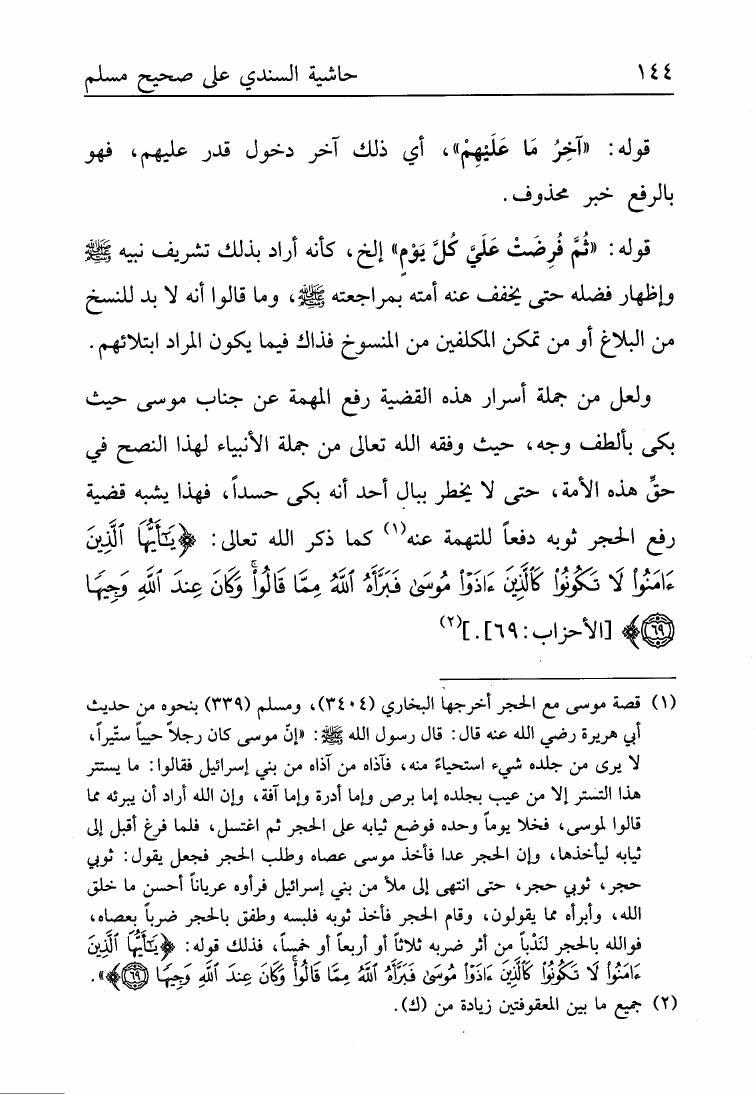 ١٤٤ حاشية السندي على صحيح مسلم
قوله: «آخِرُ مَا عَلَيْهِمْ»، أي ذلك آخر دخول قدر عليهم، فهو
بالرفع خبر محذوف.
قوله: «ثُمَّ فُرِضَتْ عَلَيَّ كُلَّ يَوْمٍ» إلخ، كأنه أراد بذلك تشريف نبيه ﷺ
وإظهار فضله حتى يخفف عنه أمته بمراجعته ﷺ، وما قالوا أنه لا بد للنسخ
من البلاغ أو من تمكن المكلفين من المنسوخ فذاك فيما يكون المراد ابتلائهم.
ولعل من جملة أسرار هذه القضية رفع المهمة عن جناب موسى حيث
بكى بألطف وجه، حيث وفقه الله تعالى من جملة الأنبياء لهذا النصح في
حقِّ هذه الأمة، حتى لا يخطر ببال أحد أنه بكى حسداً، فهذا يشبه قضية
رفع الحجر ثوبه دفعاً للتهمة عنه(١) كما ذكر الله تعالى: ﴿يَٰٓأَيُّهَا ٱلَّذِينَ
ءَامَنُوا۟ لَا تَكُونُوا۟ كَٱلَّذِينَ ءَاذَوْا۟ مُوسَىٰ فَبَرَّأَهُ ٱللَّهُ مِمَّا قَالُوا۟ۚ وَكَانَ عِندَ ٱللَّهِ وَجِيهًا
٦٩﴾ [الأحزاب: ٦٩].](٢)
(١) قصة موسى مع الحجر أخرجها البخاري (٣٤٠٤)، ومسلم (٣٣٩) بنحوه من حديث
أبي هريرة رضي الله عنه قال: قال رسول الله ﷺ: «إنّ موسى كان رجلاً حيياً ستّيراً،
لا يرى من جلده شيء استحياءً منه، فآذاه من آذاه من بني إسرائيل فقالوا: ما يستتر
هذا التستر إلا من عيب بجلده إما برص وإما أدرة وإما آفة، وإن الله أراد أن يبرئه مما
قالوا لموسى، فخلا يوماً وحده فوضع ثيابه على الحجر ثم اغتسل، فلما فرغ أقبل إلى
ثيابه ليأخذها، وإن الحجر عدا فأخذ موسى عصاه وطلب الحجر فجعل يقول: ثوبي
حجر، ثوبي حجر، حتى انتهى إلى ملأ من بني إسرائيل فرأوه عرياناً أحسن ما خلق
الله، وأبرأه مما يقولون، وقام الحجر فأخذ ثوبه فلبسه وطفق بالحجر ضرباً بعصاه،
فوالله بالحجر لَنَدْباً من أثر ضربه ثلاثاً أو أربعاً أو خمساً، فذلك قوله: ﴿يَٰٓأَيُّهَا ٱلَّذِينَ
ءَامَنُوا۟ لَا تَكُونُوا۟ كَٱلَّذِينَ ءَاذَوْا۟ مُوسَىٰ فَبَرَّأَهُ ٱللَّهُ مِمَّا قَالُوا۟ۚ وَكَانَ عِندَ ٱللَّهِ وَجِيهًا ٦٩﴾».
(٢) جميع ما بين المعقوفتين زيادة من (ك).